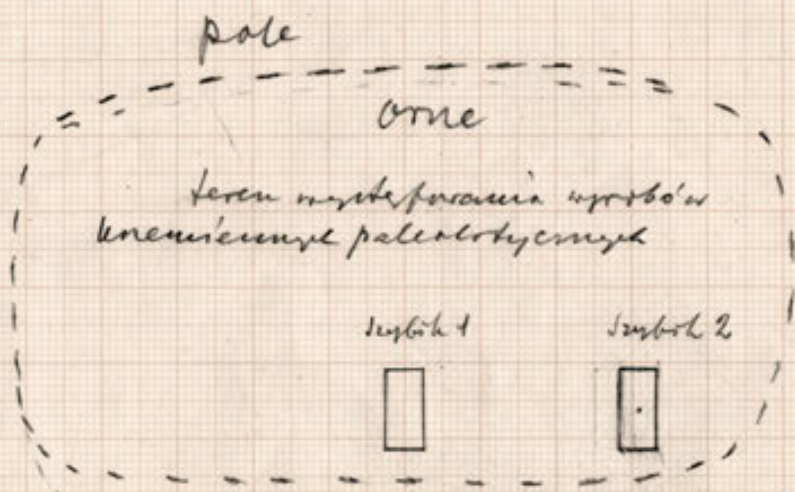 pole
orne
teren występowania wyrobów
krzemiennych paleolitycznych
szybik 1
szybik 2